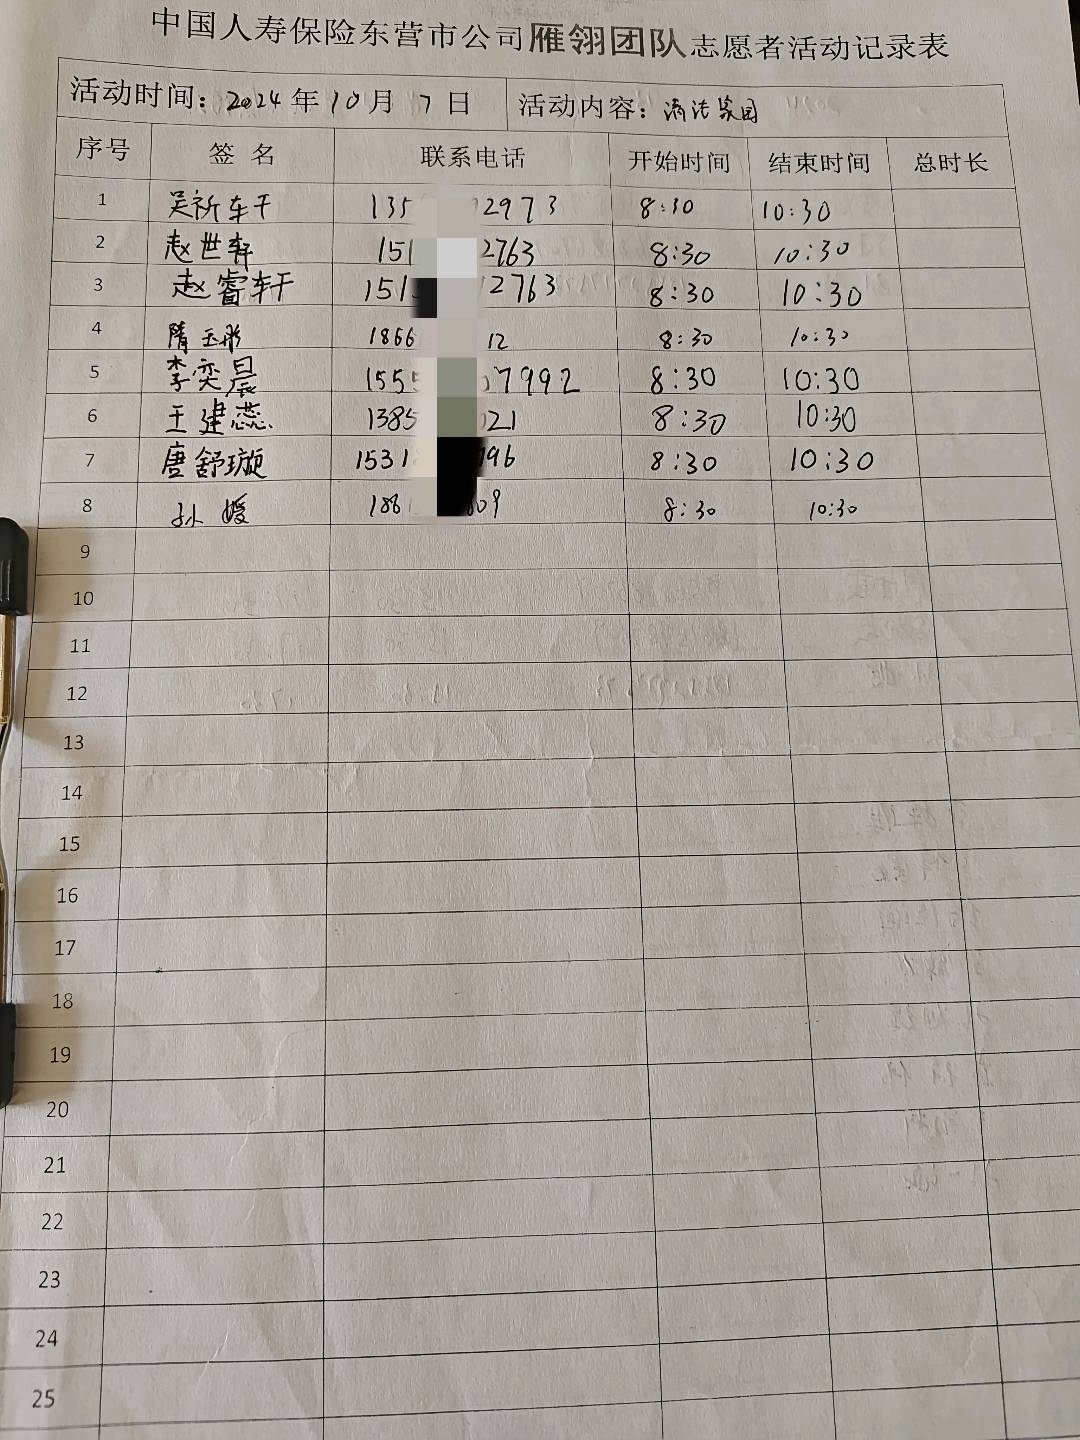 中国人寿保险东营市公司雁翎团队志愿者活动记录表
活动时间：2024年10月7日 活动内容：清洁家园
序号 签名 联系电话 开始时间 结束时间 总时长
1 吴祈轩 135 2973 8:30 10:30
2 赵世轩 151 2763 8:30 10:30
3 赵睿轩 151 12763 8:30 10:30
4 隋玉彤 1866 12 8:30 10:30
5 李奕晨 155 7992 8:30 10:30
6 王建蕊 1385 021 8:30 10:30
7 唐舒璇 1531 96 8:30 10:30
8 孙媛 186 09 8:30 10:30
9
10
11
12
13
14
15
16
17
18
19
20
21
22
23
24
25